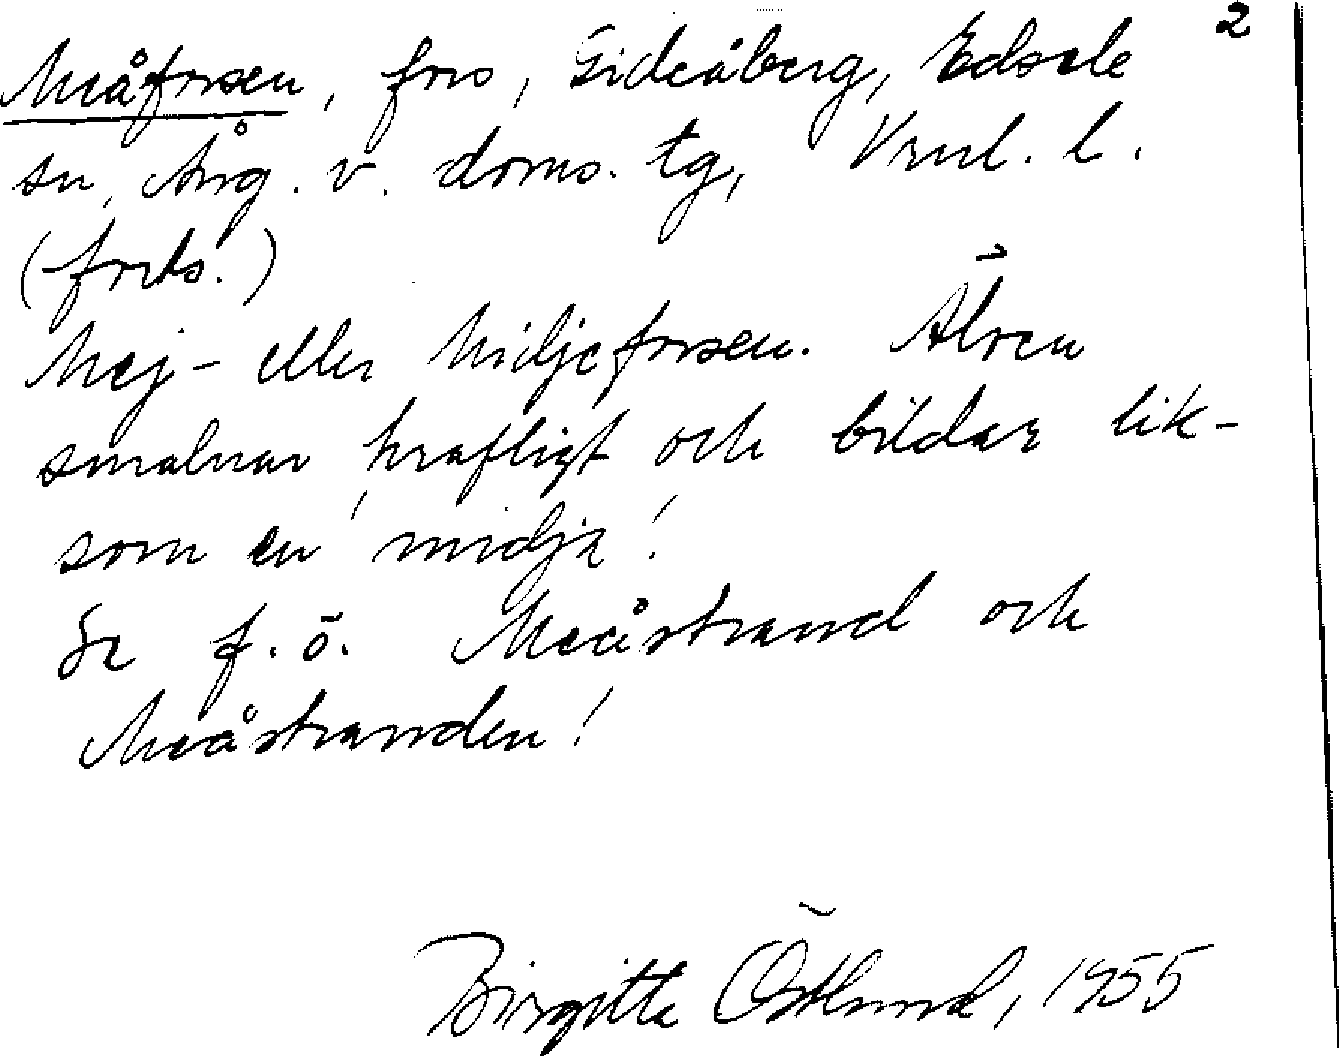 2
Meåforsen, fors, Gideåberg, Edsele
sn, Ång. v. doms. tg, Vnl. l.
(forts.)
Mej- eller Midjeforsen. Älven
smalnar kraftigt och bildar lik-
som en midja!
Se f. ö. Meåstrand och
Meåstranden!
Birgitta Östlund, 1955